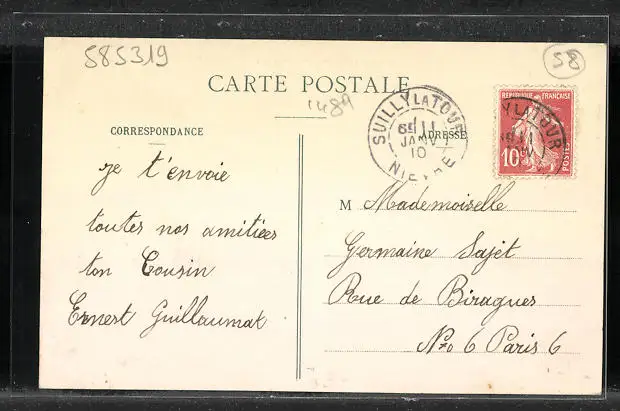 585319
58
CARTE POSTALE
1489
CORRESPONDANCE
ADRESSE
SUILLY LA TOUR
11
JANV
10
NIEVRE
REPUBLIQUE FRANÇAISE
10
POSTES
Y LA TOUR
je t'envoie
toutes nos amitiées
ton Cousin
Ernest Guillaumat
M Mademoiselle
Germaine Sajet
Rue de Biragues
No 6 Paris 6